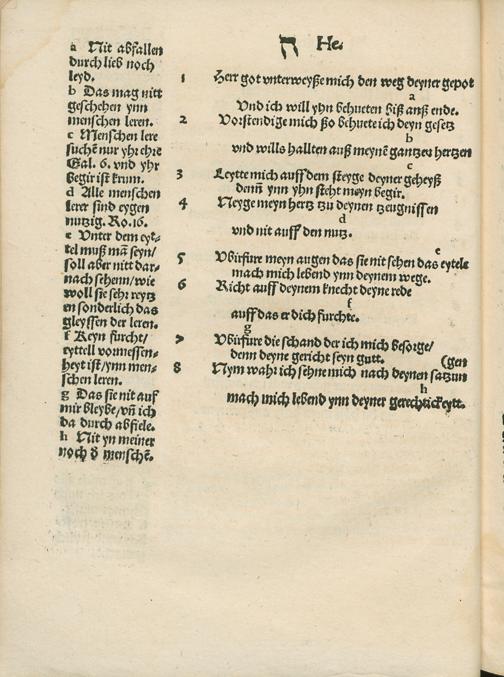 ה He.
a Nit abfallen
durch lieb noch
leyd.
b Das mag nitt
geschehen ynn
menschen leren.
c Menschen lere
suchē nur yhr ehre
Gal. 6. vnd yhr
begir ist krum.
d Alle menschen
lerer sind eygen
nutzig. Ro. 16.
e Vnter dem eyt⸗
tel muß mā seyn/
soll aber nitt dar⸗
nach sehenn/wie
woll sie sehr reytz
en sonderlich das
gleyssen der leren.
f Keyn furcht/
eyttell vormessen⸗
heyt ist/ynn men⸗
schen leren.
g Das sie nit auf
mir bleybe/vñ ich
da durch abfiele.
h Nit yn meiner
noch d̄ menschē.
1 Herr got vnterweyße mich den weg deyner gepot
a
Vnd ich will yhn behueten biß anß ende.
2 Vorstendige mich ßo behuete ich deyn gesetz
b
vnd wills hallten auß meynē gantzen hertzen
c
3 Leytte mich auff dem steyge deyner geheyß
denn̄ ynn yhn steht meyn begir.
4 Neyge meyn hertz tzu deynen tzeugnissen
d
vnd nit auff den nutz.
e
5 Vbirfure meyn augen das sie nit sehen das eytele
mach mich lebend ynn deynem wege.
6 Richt auff deynem knecht deyne rede
f
auff das er dich furchte.
g
7 Vbirfure die schand der ich mich besorge/
denn deyne gericht seyn gutt. (gen
8 Nym wahr ich sehne mich nach deynen satzun
h
mach mich lebend ynn deyner gerechtickeytt.